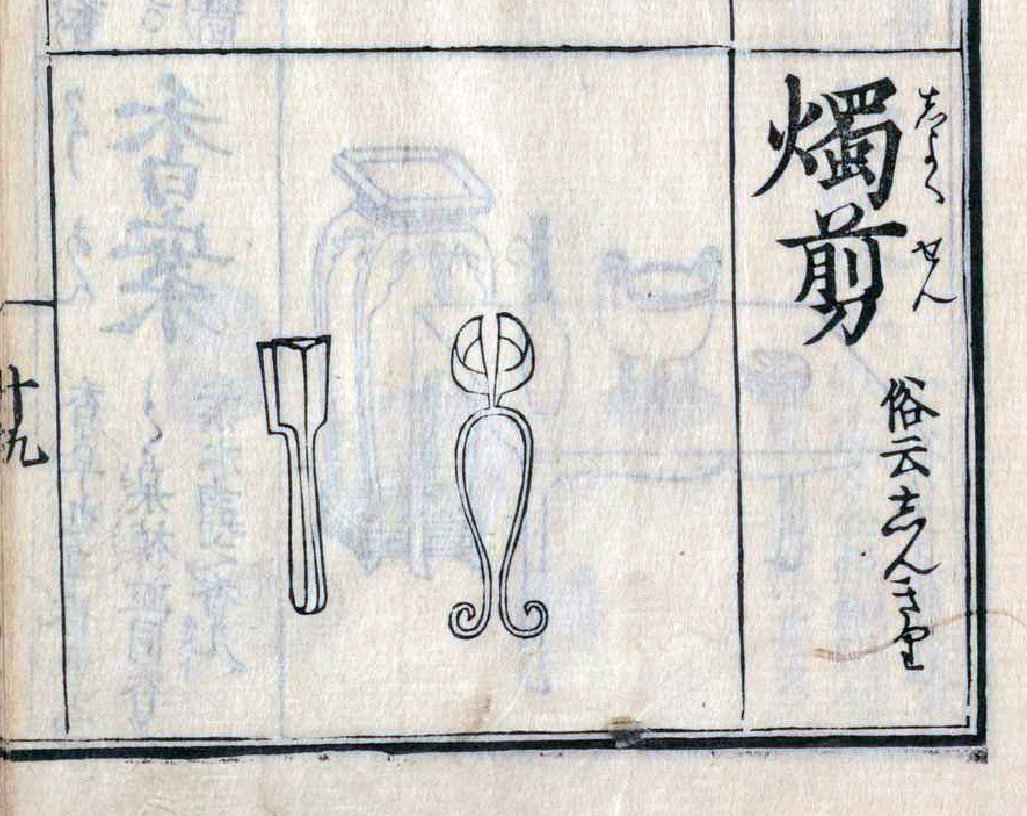 燭剪
志よくせん
俗云志んきり
十九